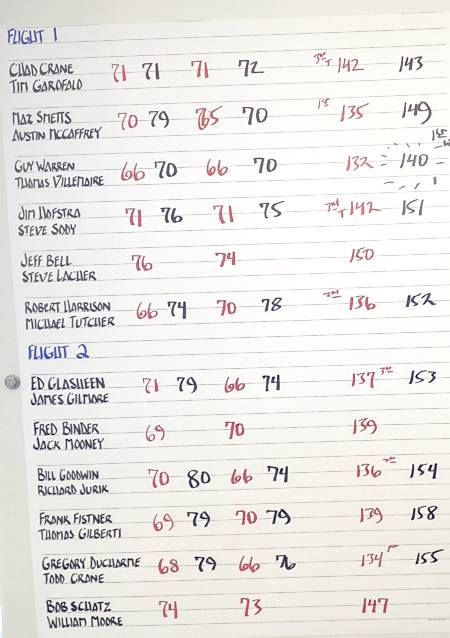 FLIGHT 1
CHAD CRANE 71 71 71 72 3RD T 142 143
TIM GAROFALO
MAX SMETTS 70 79 65 70 1ST 135 149
AUSTIN MCCAFFREY
1ST
GUY WARREN 66 70 66 70 132 140
THOMAS VILLEMAIRE
JIM HOFSTRA 71 76 71 75 3RD T 142 151
STEVE SODY
JEFF BELL 76 74 150
STEVE LACHER
ROBERT HARRISON 66 74 70 78 2ND 136 152
MICHAEL TUTCHER
FLIGHT 2
ED GLASHEEN 71 79 66 74 137 3RD 153
JAMES GILMORE
FRED BINDER 69 70 139
JACK MOONEY
BILL GOODWIN 70 80 66 74 136 2ND 154
RICHARD JURIK
FRANK FISTNER 69 79 70 79 139 158
THOMAS GILBERTI
GREGORY DUCHARME 68 79 66 76 134 1ST 155
TODD CRANE
BOB SCHATZ 74 73 147
WILLIAM MOORE